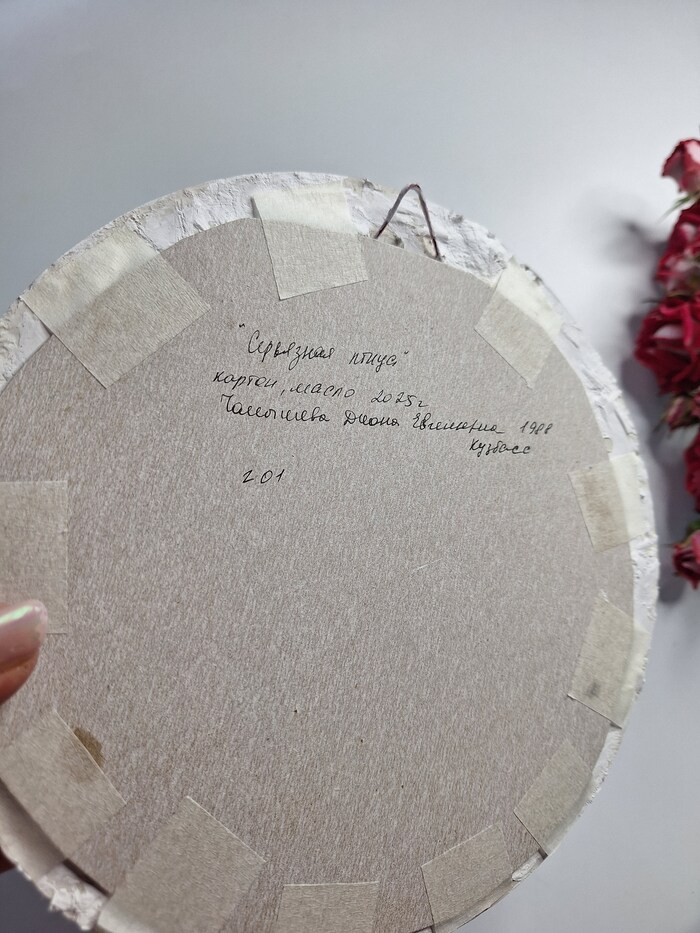 "Серьязная птица"
картон, масло 2025г
Диана Евгеньевна 1988
Кузбасс
201